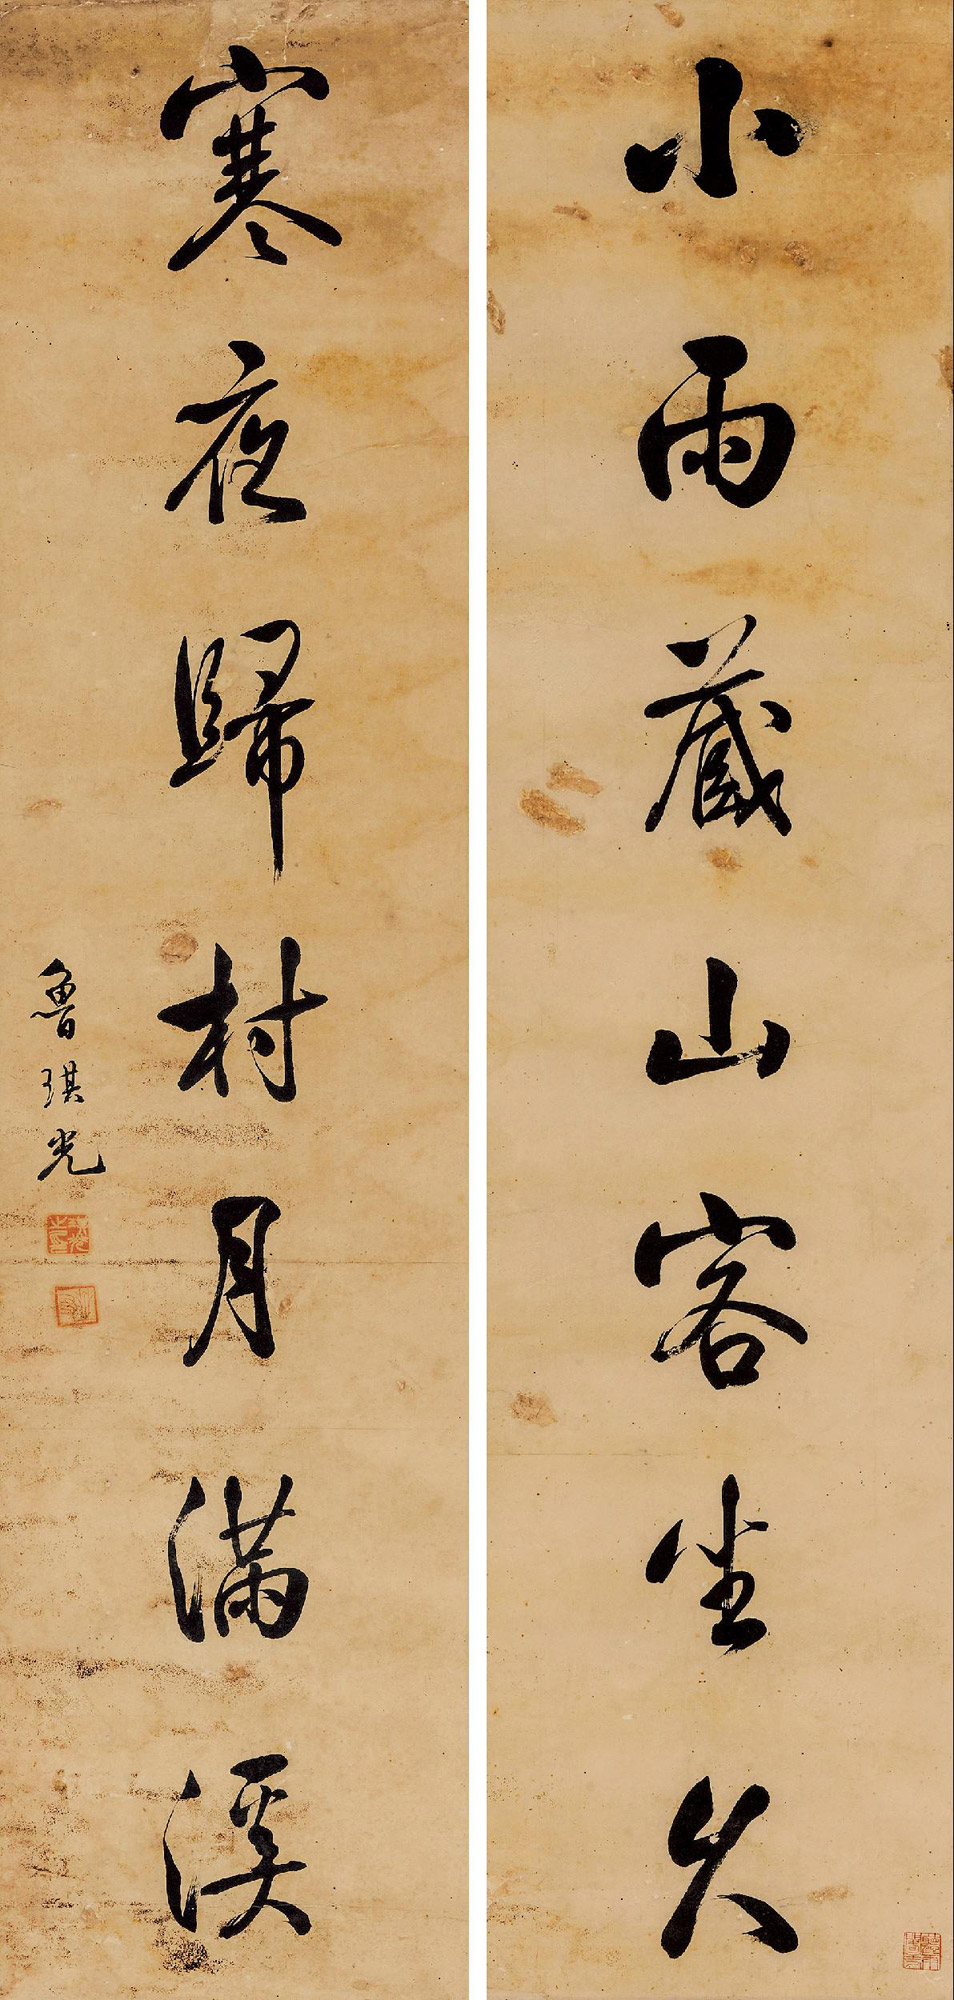 小雨藏山客坐久
寒夜歸村月滿溪
魯琪光